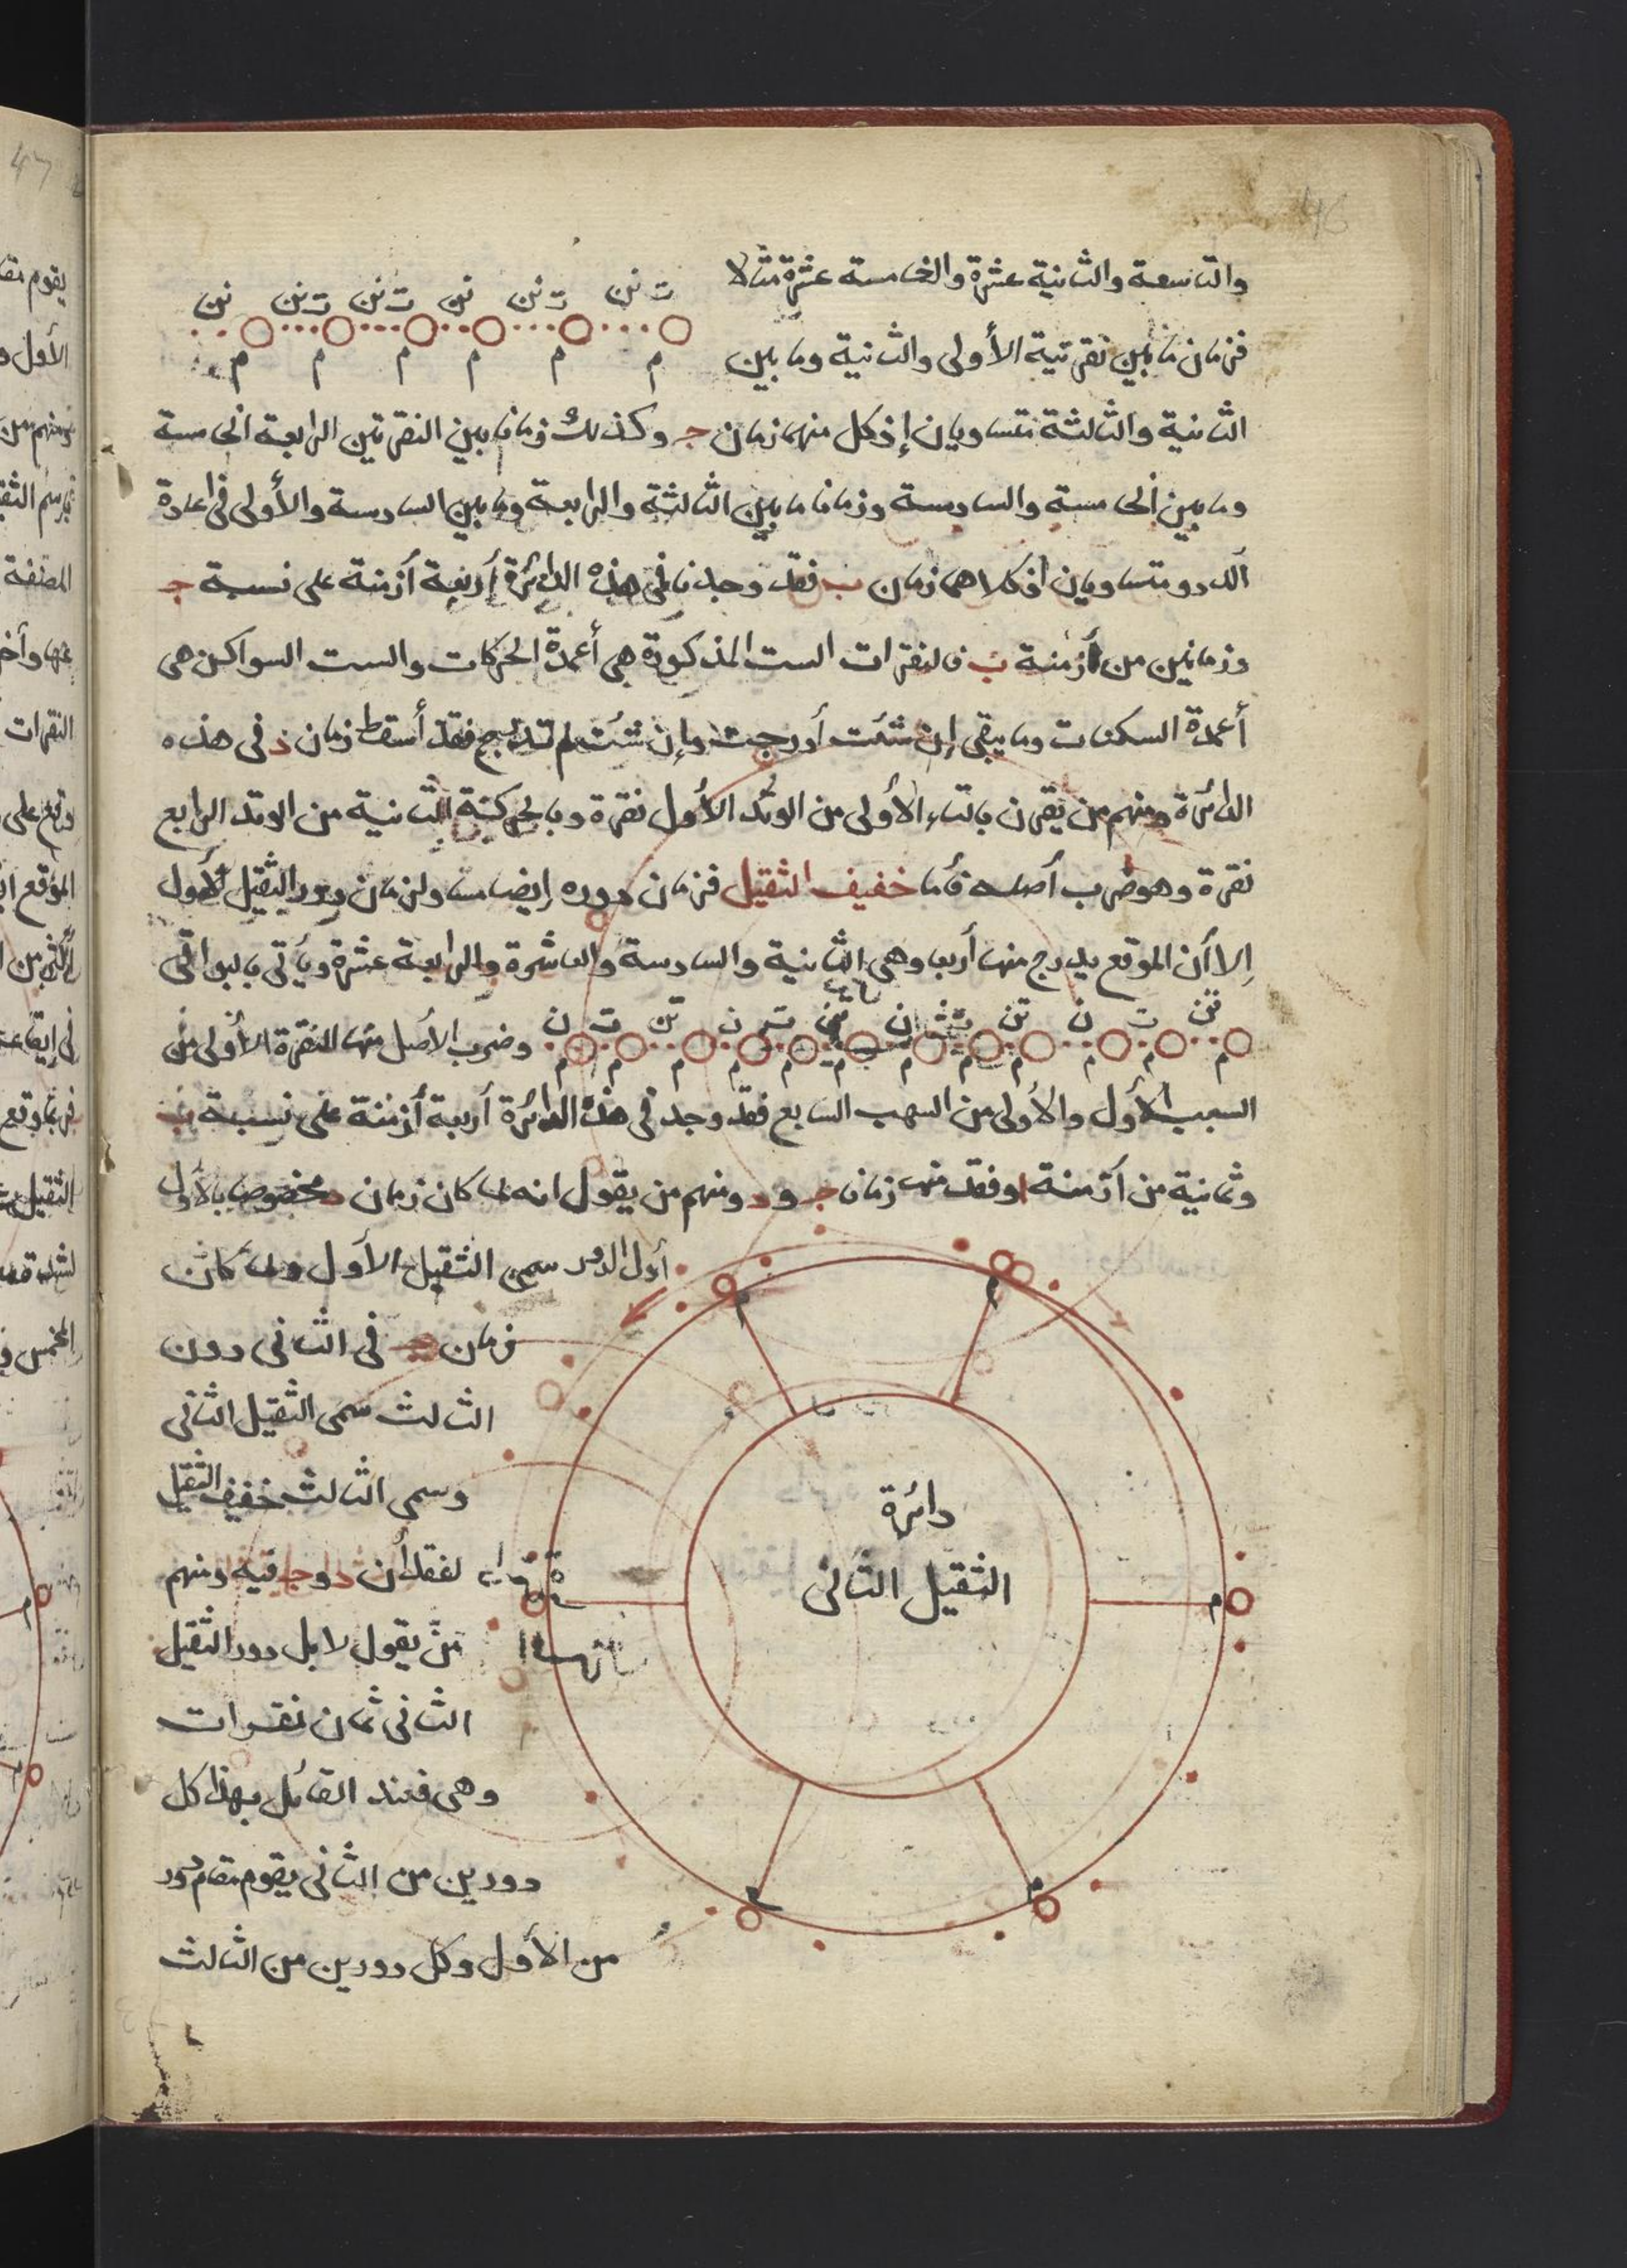 46
والتاسعة والثانية عشرة والخامسة عشرة مثالا
ت نن ت نن نن ت نن ت نن نن
م م م م م م
فزمان ما بين نقرتيه الأولى والثانية وما بين
الثانية والثالثة متساويان إذ كل منهما زمان ج وكذلك زمانا بين النقرتين الرابعة الخامسة
وما بين الخامسة والسادسة وزمانا ما بين الثالثة والرابعة وما بين السادسة والأولى في اعادة
الدور متساويان اذ كلاهما زمان ب فقد وجدنا في هذه الدائرة أربعة أزمنة على نسبة ج
وزمانين من أزمنة ب فالنقرات الست المذكورة هي أعمدة الحركات والست السواكن هي
أعمدة السكنات وما يبقى إن شئت أدرجت وإن شئت لم تدرج فقد أسقط زمان د في هذه
الدائرة ومنهم من يقرن بالتاء الأولى من الوتد الأول نقرة وبالحركة الثانية من الوتد الرابع
نقرة وهو ضرب أصله فأما خفيف الثقيل فزمان دوره ايضا مساو لزمان دور الثقيل الأول
إلا أن الموقع يدرج منها أربعا وهي الثانية والسادسة والعاشرة والرابعة عشرة ويأتي بالبواقي
تن ت ن تن ت ن تن ت ن تن ت ن
م م م م م م م م م م م م
وضرب الأصل منها النقرة الأولى من
السبب الأول والأولى من السبب السابع فقد وجد في هذه الدائرة أربعة أزمنة على نسبة ب
وثمانية من أزمنة ا وفقد منها زمانا ج و د ومنهم من يقول انه لما كان زمان د مخصوصا بالأول
أول الدور سمى الثقيل الأول ولما كان
زمان ج في الثاني دون
الثالث سمى الثقيل الثاني
وسمى الثالث خفيف الثقيل
لفقدان د و ج فيه ومنهم
من يقول لا بل دور الثقيل
الثاني ثمان نقرات
وهي فعند القائل بهذا كل
دورين من الثاني يقوم مقام دور
من الأول وكل دورين من الثالث
دائرة
الثقيل الثاني
م
م